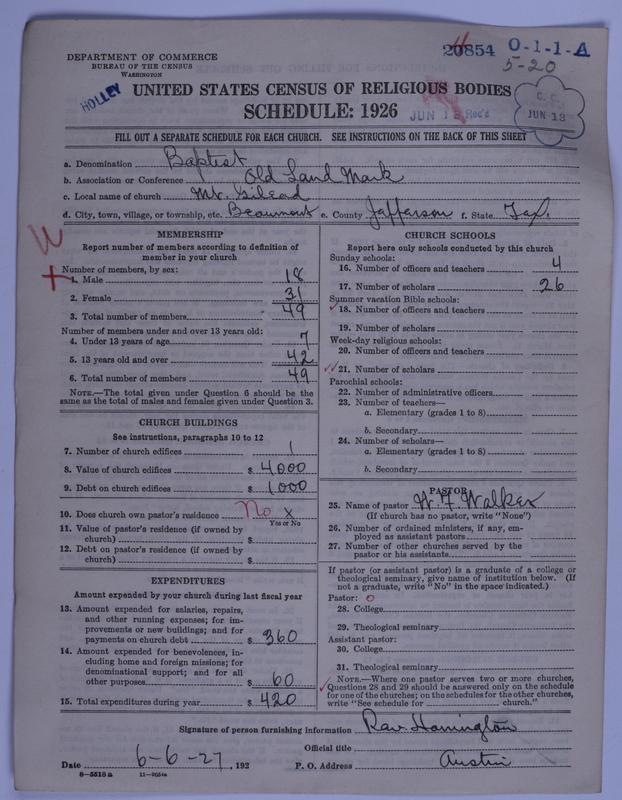 20854 0-1-1-A
5-20
DEPARTMENT OF COMMERCE
BUREAU OF THE CENSUS
WASHINGTON
HOLLEY
UNITED STATES CENSUS OF RELIGIOUS BODIES
SCHEDULE: 1926
JUN 13 Rec'd
C. C.
JUN 13
FILL OUT A SEPARATE SCHEDULE FOR EACH CHURCH. SEE INSTRUCTIONS ON THE BACK OF THIS SHEET
a. Denomination Baptist
b. Association or Conference Old Land Mark
c. Local name of church Mt. Gilead
d. City, town, village, or township, etc. Beaumont e. County Jefferson f. State Tex.
MEMBERSHIP
Report number of members according to definition of
member in your church
Number of members, by sex:
1. Male 18
2. Female 31
3. Total number of members 49
Number of members under and over 13 years old:
4. Under 13 years of age 7
5. 13 years old and over 42
6. Total number of members 49
NOTE.—The total given under Question 6 should be
same as the total of males and females given under Question 3.
CHURCH BUILDINGS
See instructions, paragraphs 10 to 12
7. Number of church edifices 1
8. Value of church edifices $ 4000
9. Debt on church edifices $ 1000
10. Does church own pastor's residence No x
Yes or No
11. Value of pastor's residence (if owned by
church) $
12. Debt on pastor's residence (if owned by
church) $
EXPENDITURES
Amount expended by your church during last fiscal year
13. Amount expended for salaries, repairs,
and other running expenses; for im-
provements or new buildings; and for
payments on church debt $ 360
14. Amount expended for benevolences, in-
cluding home and foreign missions; for
denominational support; and for all
other purposes $ 60
15. Total expenditures during year $ 420
CHURCH SCHOOLS
Report here only schools conducted by this church
Sunday schools:
16. Number of officers and teachers 4
17. Number of scholars 26
Summer vacation Bible schools:
18. Number of officers and teachers
19. Number of scholars
Week-day religious schools:
20. Number of officers and teachers
21. Number of scholars
Parochial schools:
22. Number of administrative officers
23. Number of teachers—
a. Elementary (grades 1 to 8)
b. Secondary
24. Number of scholars—
a. Elementary (grades 1 to 8)
b. Secondary
PASTOR
25. Name of pastor W. F. Walker
(If church has no pastor, write "None")
26. Number of ordained ministers, if any, em-
ployed as assistant pastors
27. Number of other churches served by the
pastor or his assistants
If pastor (or assistant pastor) is a graduate of a college or
theological seminary, give name of institution below. (If
not a graduate, write "No" in the space indicated.)
Pastor: o
28. College
29. Theological seminary
Assistant pastor:
30. College
31. Theological seminary
NOTE.—Where one pastor serves two or more churches,
Questions 28 and 29 should be answered only on the schedule
for one of the churches; on the schedules for the other churches,
write "See schedule for church."
Signature of person furnishing information Rev. Harrington
Official title
Date 6-6-27, 192 P. O. Address Austin
8-5518a 11-9054a